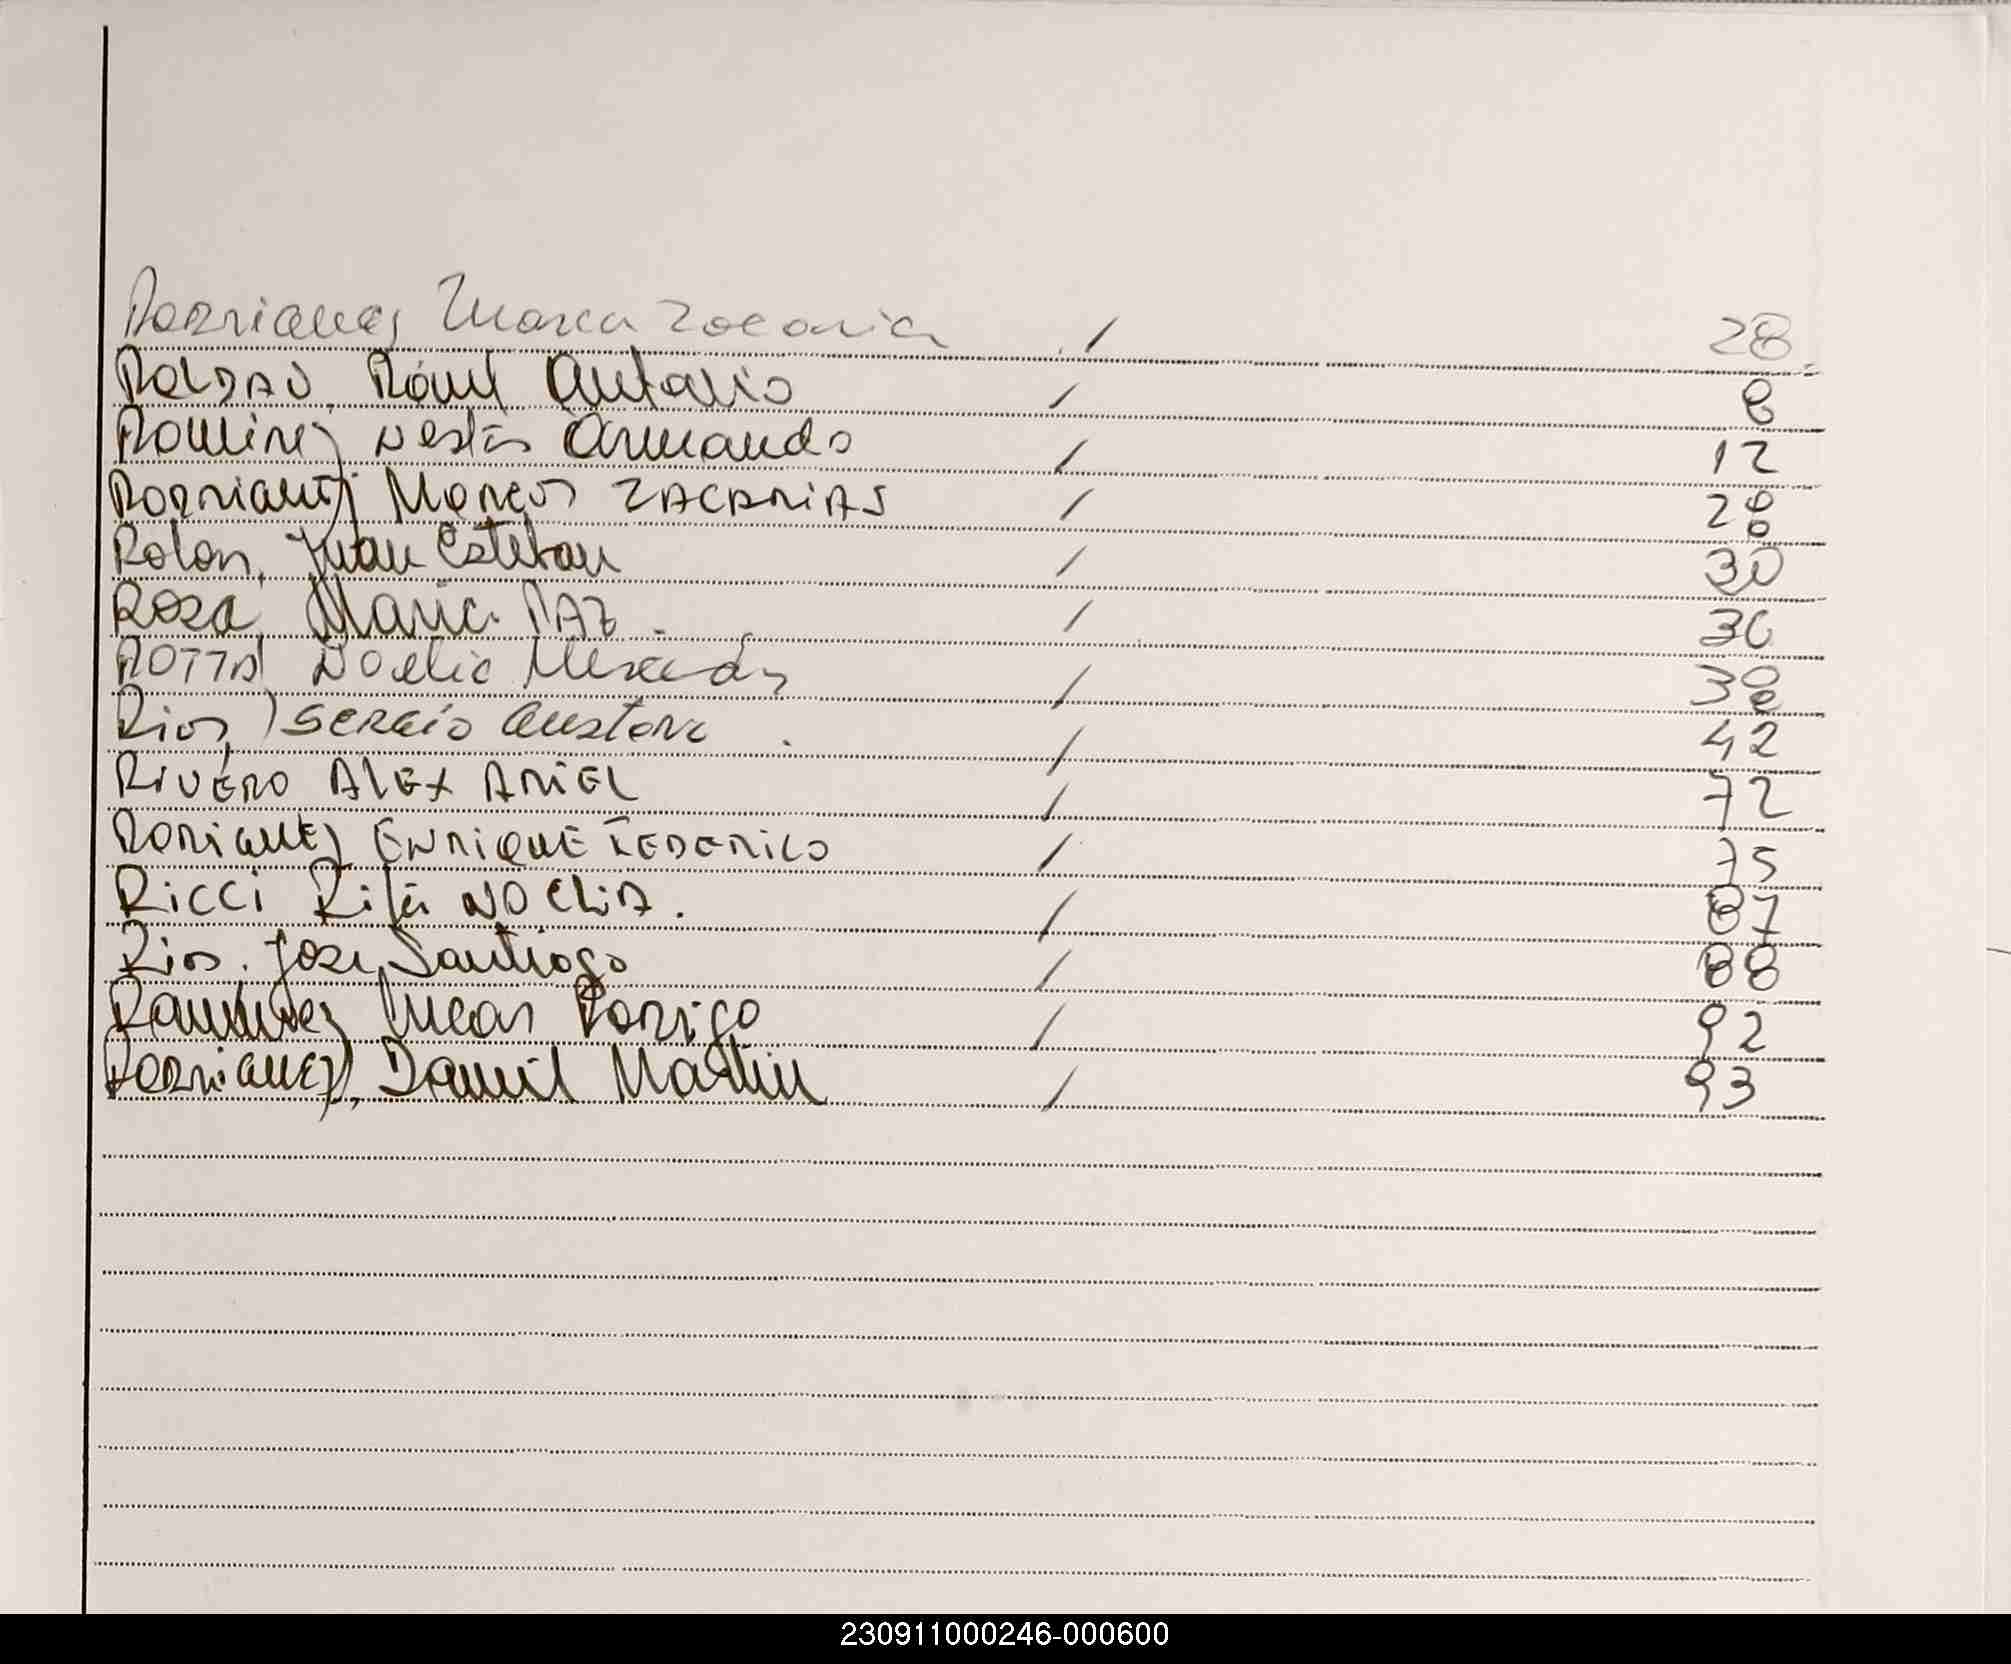 Rodriguez Marcos Zacaria / 28
ROLDAN, Raul Antonio / 8
Ramirez Nestor Armando / 12
Rodriguez Marcos ZACARIAS / 28
Rolon, Juan Esteban / 30
Roza, Maria PAZ. / 36
ROTTA Noelia Mercedes / 38
Rios, Sergio Gustavo. / 42
RIVERO ALEX ARIEL / 72
RODRIGUEZ ENRIQUE FEDERICO / 75
Ricci Rita NOELIA. / 87
Rios. Jose Santiago / 88
Ramirez Lucas Rodrigo / 92
Rodriguez, Daniel Martin / 93
230911000246-000600